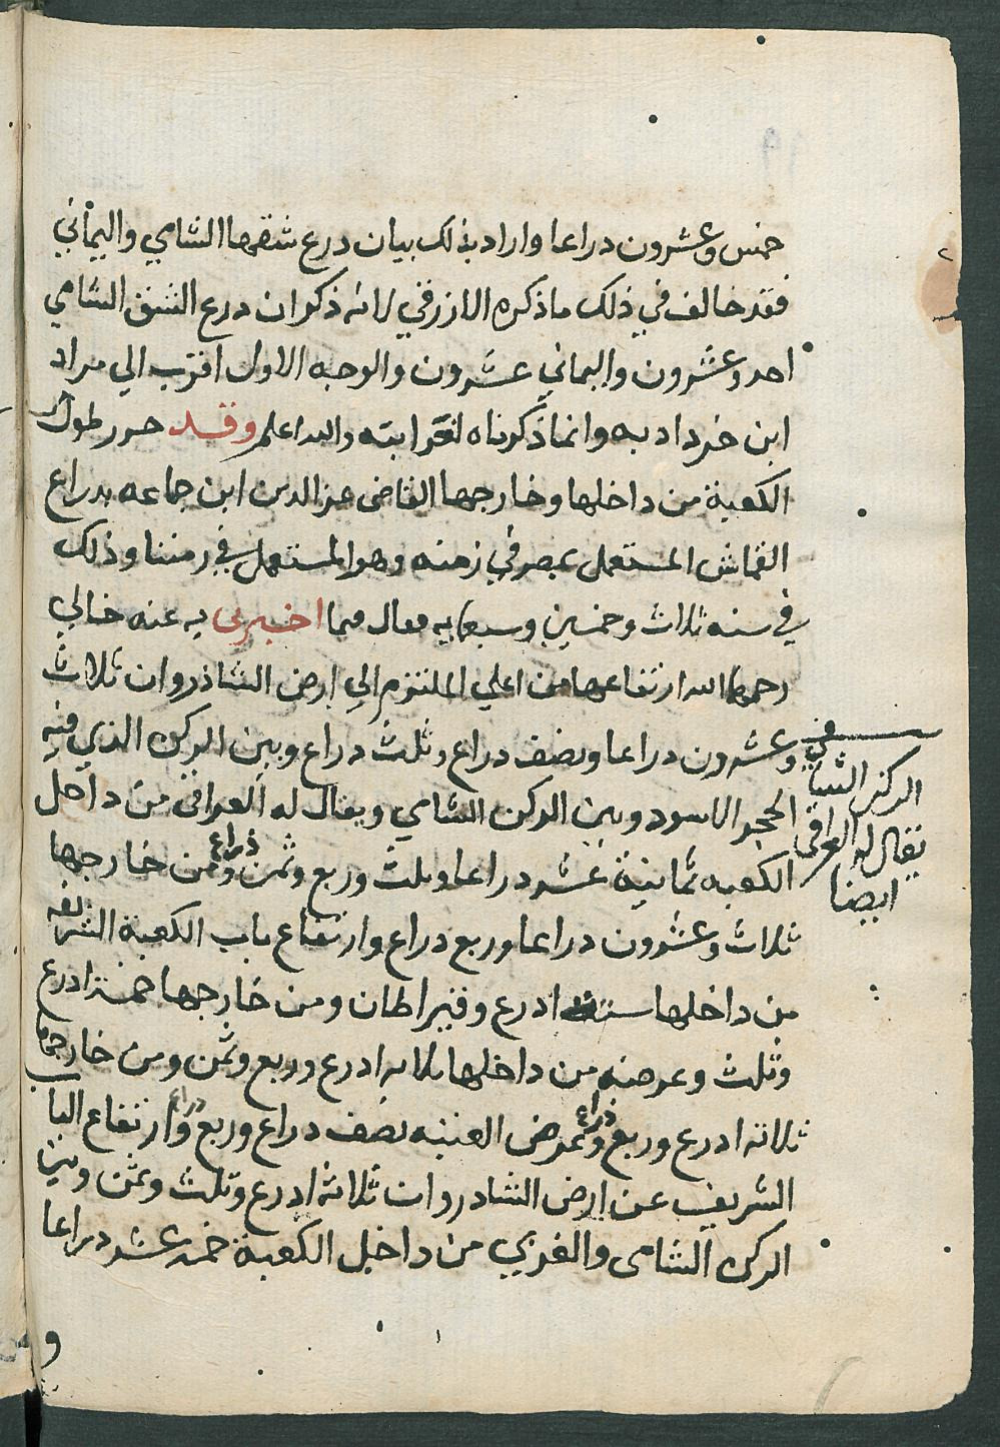 خمس وعشرون دراعا واراد بذلك بيان درع شقها الشامي واليماني
فقد خالف في ذلك ماذكره الازرقي لانه ذكر ان درع الشق الشامي
احد وعشرون واليماني عشرون والوجه الاول اقرب الي مراد
ابن خرداد به وانما ذكرناه لغرابته والله اعلم وقد حرر طول
الكعبة من داخلها وخارجها القاضى عز الدين ابن جماعه بدراع
القماش المستعمل بمصر في زمنه وهو المستعمل في زمننا وذلك
في سنه ثلاث وخمسين وسبعمايه فقال فيما اخبرنى به عنه خالي
رحمهما الله ارتفاعها من اعلي الملتزم الي ارض الشاذروان ثلاث
وعشرون دراعا ونصف دراع وثلث دراع وبين الركن الذي فيه
الحجر الاسود وبين الركن الشامي ويقال له العراقى من داخل
الكعبه ثمانية عشر دراعا وثلث وربع وثمن ذراع ومن خارجها
ثلاث وعشرون دراعا وربع دراع وارتفاع باب الكعبة الشريفه
من داخلها ستة ادرع وقيراطان ومن خارجها خمسة ادرع
وثلث وعرضه من داخلها ثلاثه ادرع وربع وثمن ومن خارجها
ثلاثه ادرع وربع ذراع وعرض العتبه نصف دراع وربع دراع وارتفاع الباب
الشريف عن ارض الشادروان ثلاثه ادرع وثلث وثمن وبين
الركن الشامى والغربي من داخل الكعبة خمسة عشر دراعا
الركن الشامي
يقال له العراقى
ايضا